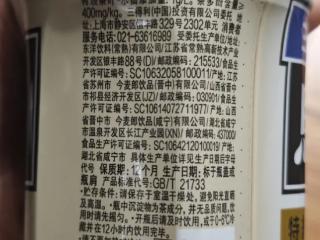 400mg/kg。三得利(中国)投资有限公司 委托 地
址:上海市静安区镇宁路329号2302单元 消费者
服务电话:021-63616989 受委托生产单位/地址:
东洋饮料(常熟)有限公司/江苏省常熟高新技术产业
开发区银丰路88号(D)/ 邮政编码: 215533/ 食品生
产许可证编号: SC10632058100011/产地:江苏
省苏州市 今麦郎饮品(晋中)有限公司/山西省晋中
市祁县经济开发区(JZ)/ 邮政编码: 030901/ 食品生
产许可证编号: SC10614072711977/ 产地:山西
省晋中市 今麦郎饮品(咸宁)有限公司/湖北省咸宁
市温泉开发区长江产业园(XN)/ 邮政编码: 437000/
食品生产许可证编号: SC10642120100019/ 产地:
湖北省咸宁市 具体生产单位详见生产日期后字母
代号 保质期: 12个月 生产日期: 标于瓶盖或
瓶肩 产品标准代号:GB/T 21733
·贮存条件:请保存于室温干燥处,避免阳光直晒
及高温。·瓶中沉淀物为茶成分,并无产品质量问题,饮
用时请先摇匀。·开瓶后请及时饮用,或于0-5℃冷
藏并在12小时内饮用完毕。
特